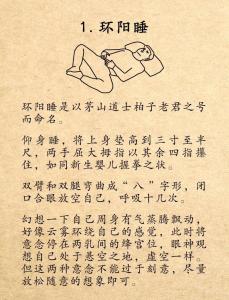 1.环阳睡
环阳睡是以茅山道士柏子老君之号
而命名。
仰身睡，将上身垫高到三寸至半
尺，两手屈大拇指以其余四指攥
住，如同新生婴儿握拳之状。
双臂和双腿弯曲成“八”字形，闭
口合眼放空自己，呼吸十几次。
幻想一下自己周身有气蒸腾飘动，
好像云雾环绕自己的感觉，此时将
意念停在两乳间的绛宫位，眼神观
想自己处于悬空之地，虚空一样。
但这两种意念不能过于刻意，尽量
放松随意的想象即可。